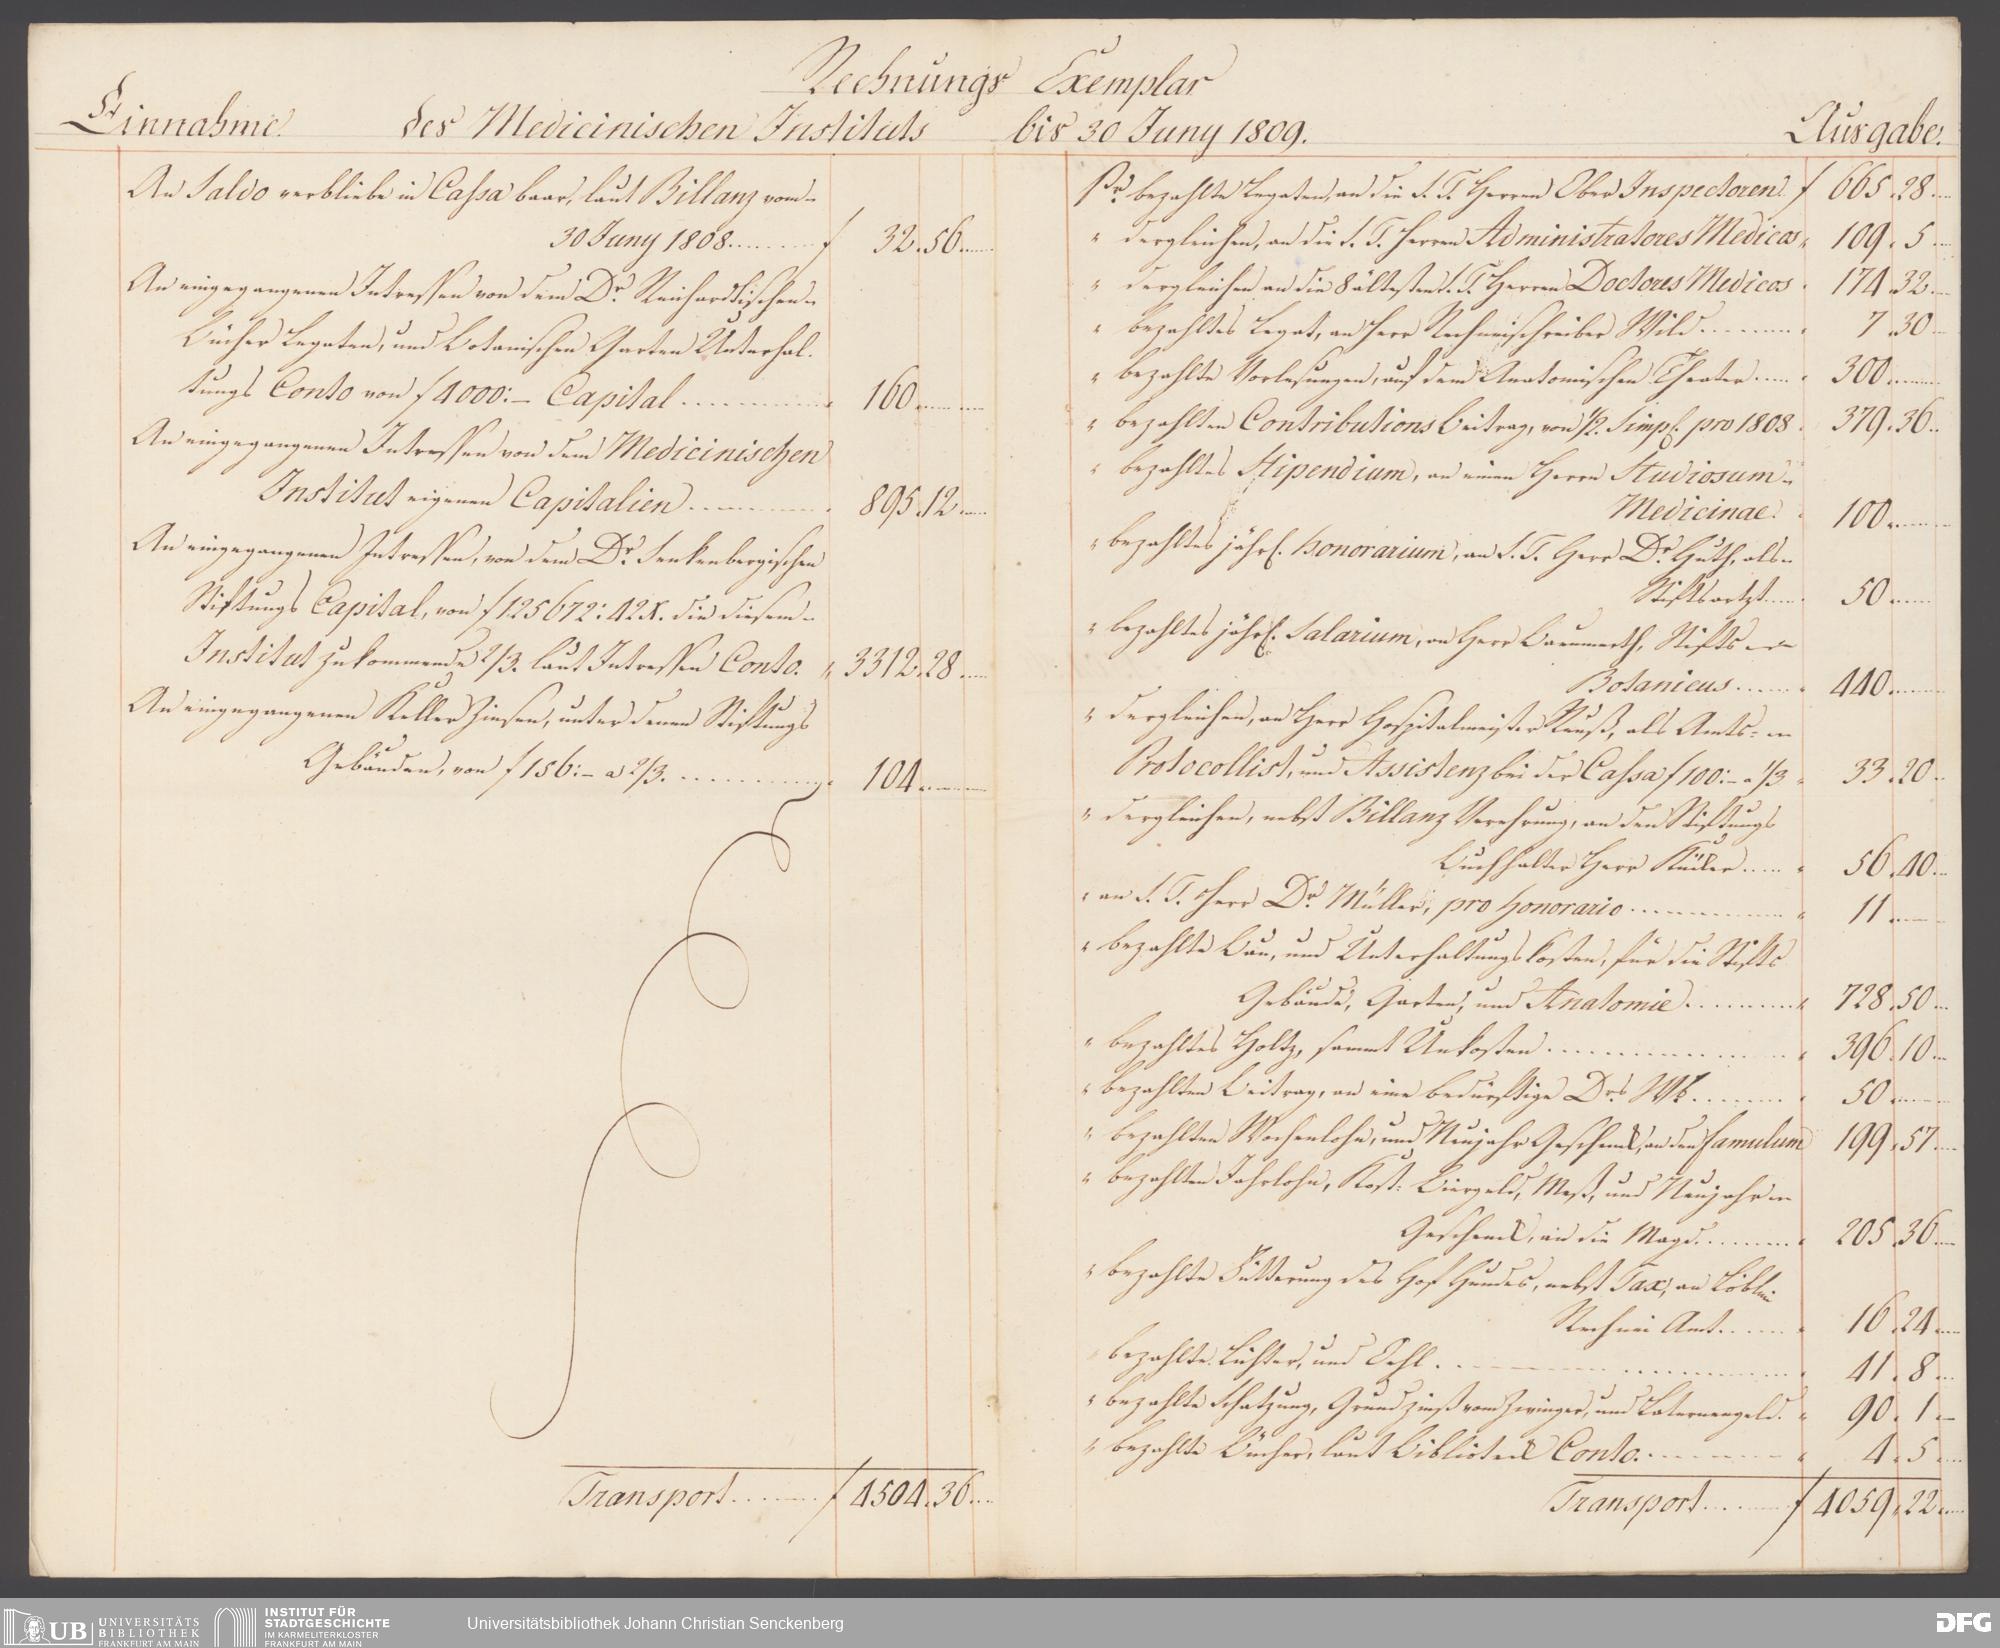 Rechnungs Exemplar
Einnahme des Medicinischen Instituts bis 30 Juny 1809. Ausgabe.
An Saldo verbliebe in Cassa baar, laut Billanz vom
30 Juny 1808. f 32. 56.
An eingegangenen Intressen von dem Dr. Reinhardtischen
Bücher Legaten, und Botanischen Garten Unterhal-
tungs Conto von f 4000:- Capital 160.
An eingegangenen Intressen von dem Medicinischen
Institut eigenen Capitalien 895. 12.
An eingegangenen Intressen, von dem Dr. Senkenbergischen
Stiftungs Capital, von f 125672:42X. die diesem
Institut zukommende 2/3. laut Intressen Conto. " 3312. 28.
An eingegangenen Keller Zinsen, unter denen Stiftungs
Gebäuden, von f 156:- a 2/3. 104.
Transport f 4504. 36.
Pr. bezahlte Legaten, an die S. T. Herren Ober Inspectoren. f 665. 28.
" dergleichen, an die S. T. Herren Administratores Medicos " 109. 5.
" dergleichen an die 8 ältesten S. T. Herren Doctores Medicos " 174. 32.
" bezahltes Legat, an Herr Rechneischreiber Wild " 7. 30
" bezahlte Vorlesungen, auf dem Anatomischen Theater " 300.
" bezahlten Contributions Beitrag, von 1/2. Simpl. pro 1808 " 379. 36.
" bezahltes Stipendium, an einen Herrn Studiosum
Medicinae. 100.
" bezahltes jährl. Honorarium, an S. T. Herr Dr. Huth, als
Stiftsartzt 50.
" bezahltes jährl. Salarium, an Herr Baumerth, Stifts
Botanicus " 440.
" dergleichen, an Herr Hospitalmeister Reuß, als Amts-
Protocollist, und Assistenz bei der Cassa f 100:- a 1/3 " 33. 20.
" dergleichen, nebst Billanz Verehrung, an den Stiftungs
Buchhalter Herr " 56. 40.
" an S. T. Herr Dr. Müller, pro Honorario " 11.
" bezahlte Bau, und Unterhaltungs kosten, für die Stifts
Gebäude, Garten, und Anatomie " 728. 50.
" bezahltes Holtz, sammt Unkosten " 396. 10.
" bezahlten Beitrag, an eine bedürftige Drs. Wb. " 50.
" bezahlten Wochenlohn, und Neujahr Geschenck, an den famulum 199. 57.
" bezahlten Jahrlohn, Kost- Biergeld, Meß, und Neujahr
Geschenck, an die Magd " 205. 36.
" bezahlte Fütterung des Hof Hundes, nebst Tax, an Löbln.
Rechnei Amt " 16. 24.
bezahlte Lichter, und Oehl " 41. 8.
" bezahlte Schatzung, Grundzinß vom Zwinger, und Laternengeld. " 90. 1.
" bezahlte Bücher, laut Biblioteck Conto. " 4. 5.
Transport f 4059. 22.
UB UNIVERSITÄTS
BIBLIOTHEK
FRANKFURT AM MAIN
INSTITUT FÜR
STADTGESCHICHTE
IM KARMELITERKLOSTER
FRANKFURT AM MAIN
Universitätsbibliothek Johann Christian Senckenberg
DFG